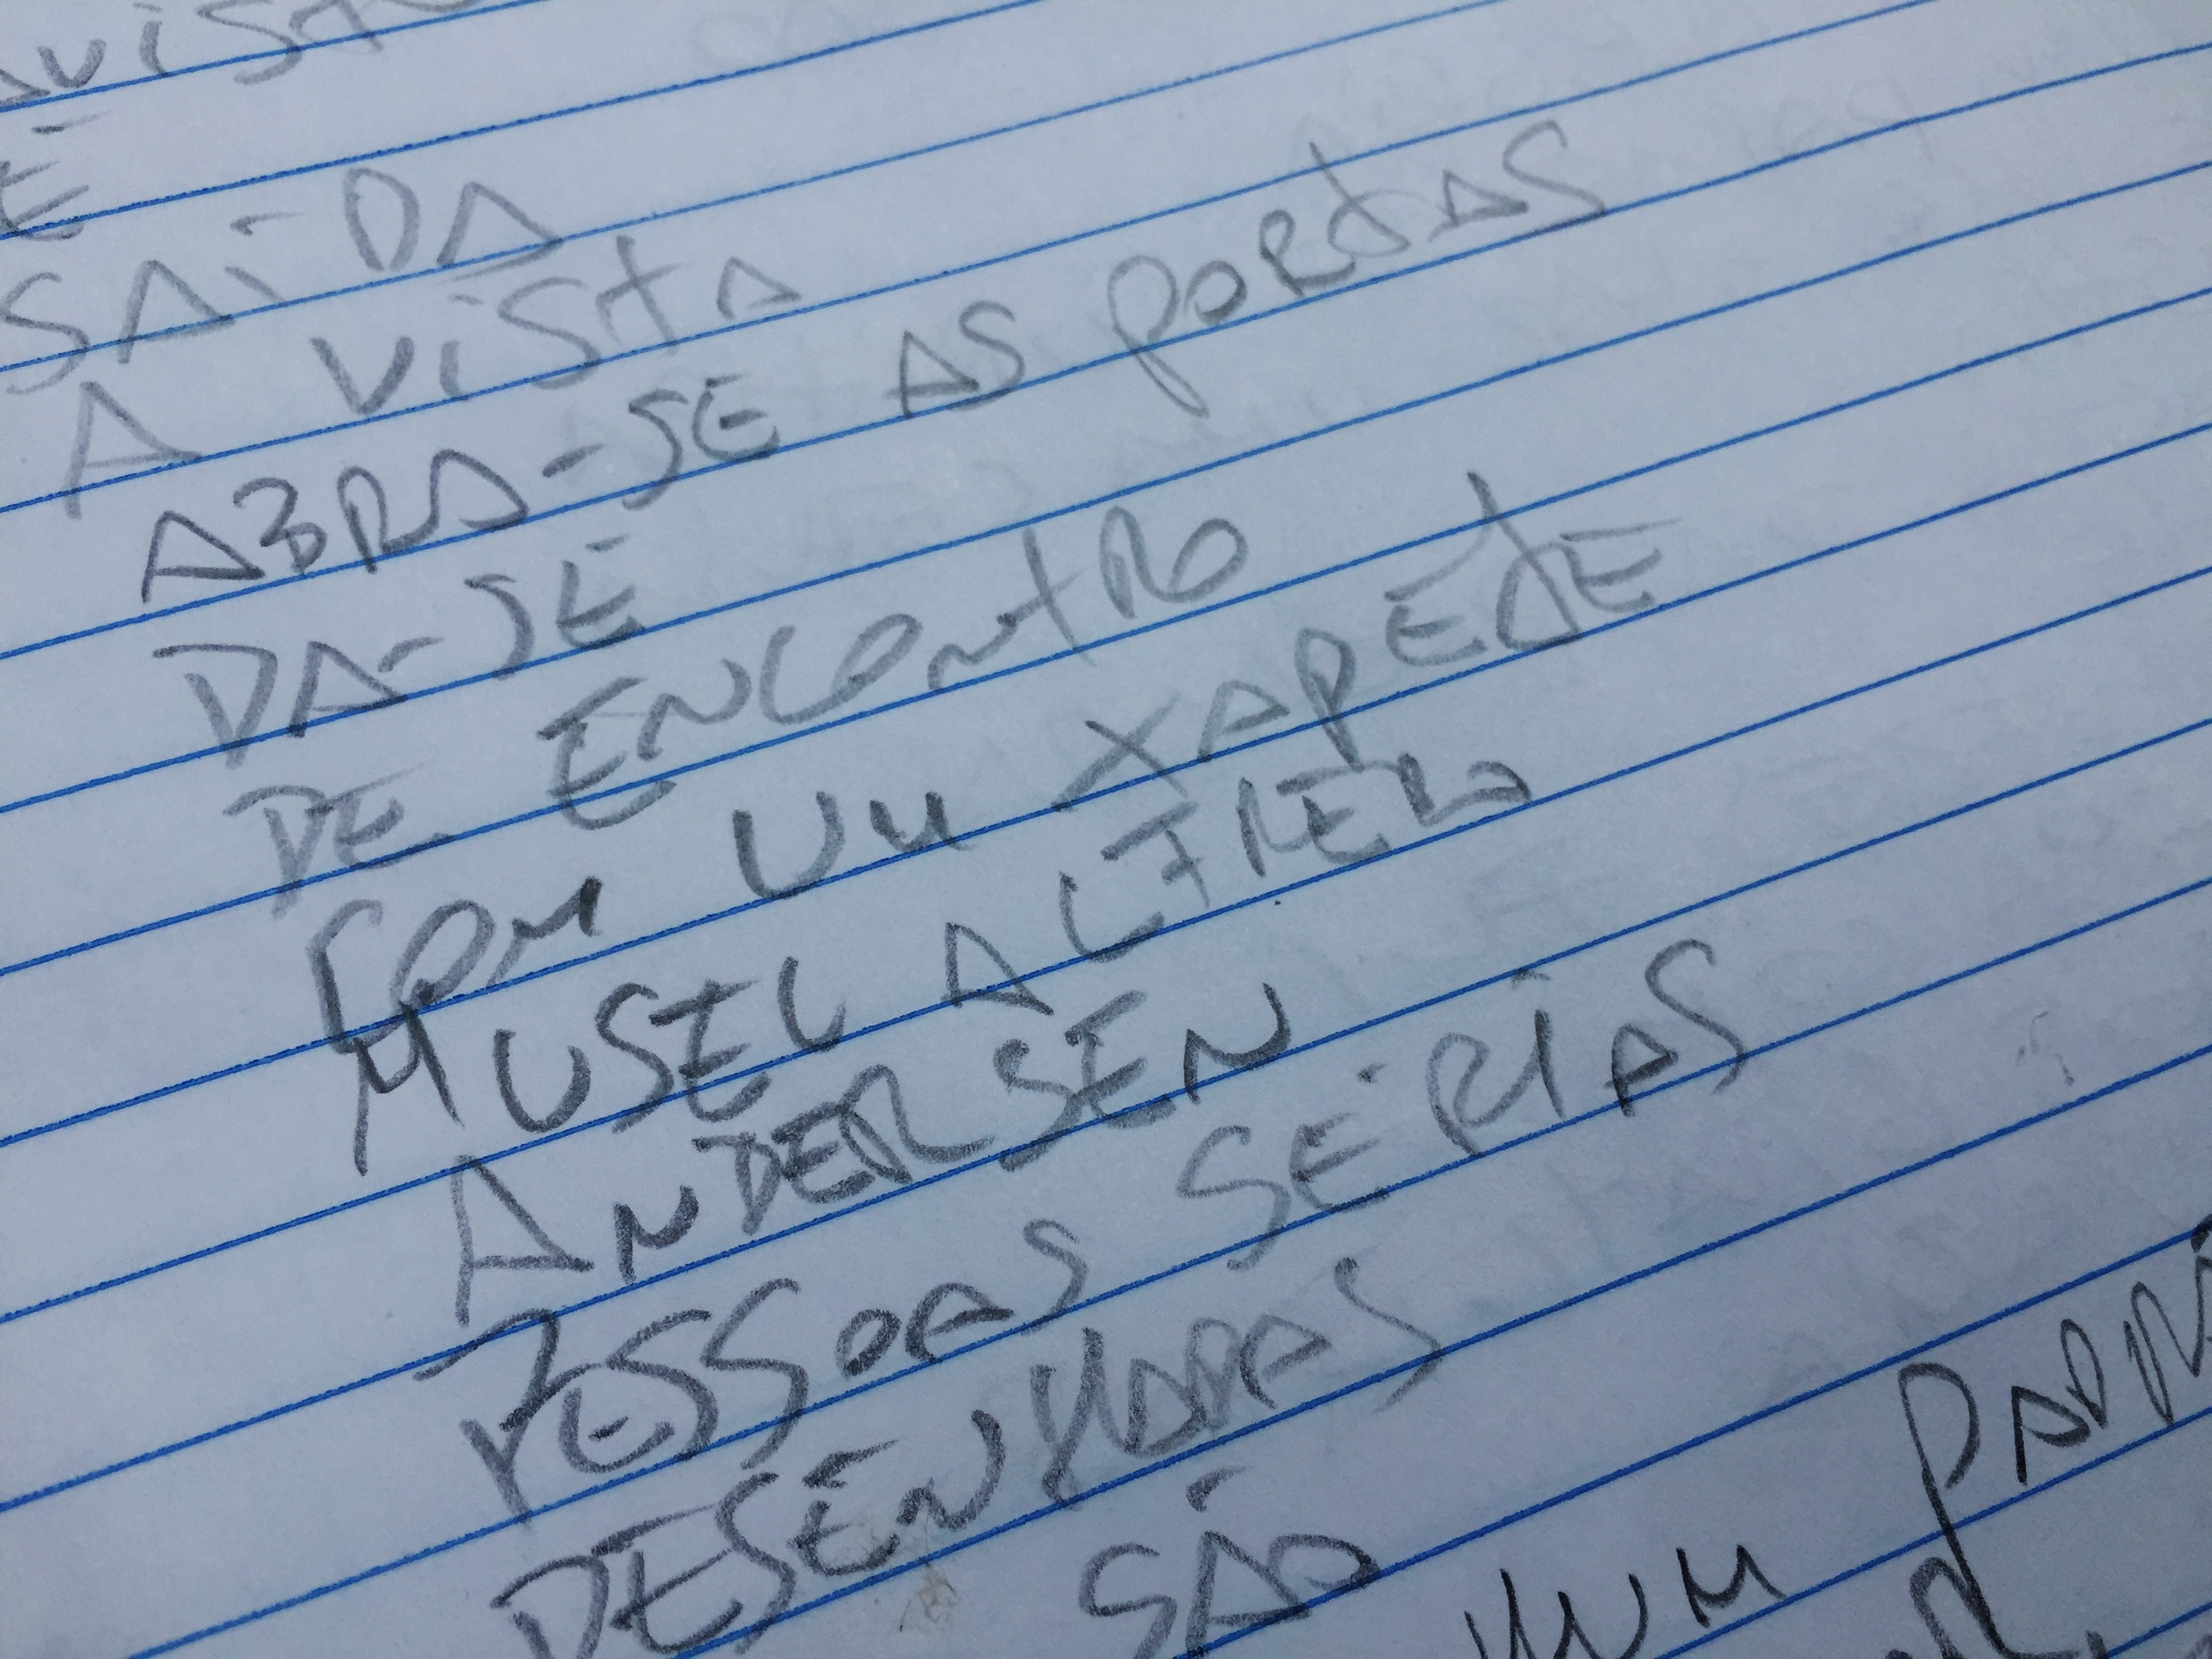 É
SAÍDA
A VISTA
ABRA-SE AS PORTAS
DA-SE
DE ENCONTRO
COM UM TAPETE
MUSEL ALFRED
ANDERSEN
PESSOAS SÉRIAS
DESENHADAS
SÃO
NUM